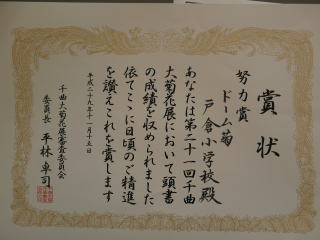 賞状
努力賞
ドーム菊
戸倉小学校殿
あなたは第二十一回千曲
大菊花展において頭書
の成績を収められました
依てここに日頃のご精進
を讃えこれを賞します
平成二十九年十一月十五日
千曲大菊花展審査委員会
委員長 平林卓司